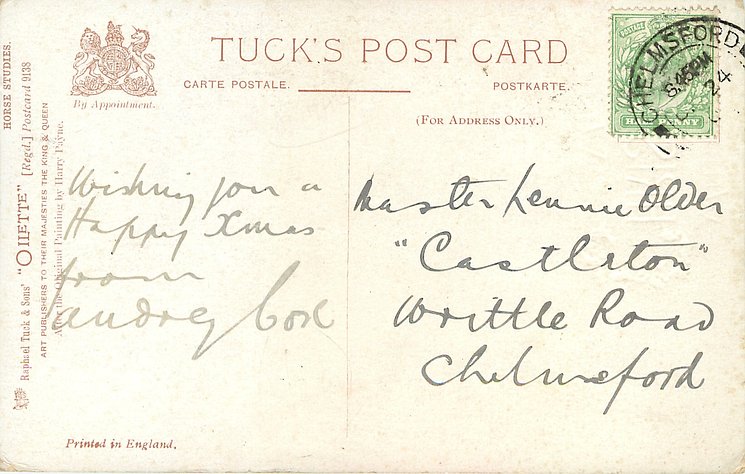 TUCK'S POST CARD
CARTE POSTALE.
POSTKARTE.
By Appointment.
(FOR ADDRESS ONLY.)
HORSE STUDIES.
Raphael Tuck & Sons' "OILETTE" [Regd.] Postcard 9138
ART PUBLISHERS TO THEIR MAJESTIES THE KING & QUEEN
After the Original Painting by Harry Payne.
POSTAGE
HALF PENNY
CHELMSFORD
8.45PM
24
Wishing you a
Happy Xmas
from
Audrey Cox
Master Lennie Older
"Castleton"
Writtle Road
Chelmsford
Printed in England.